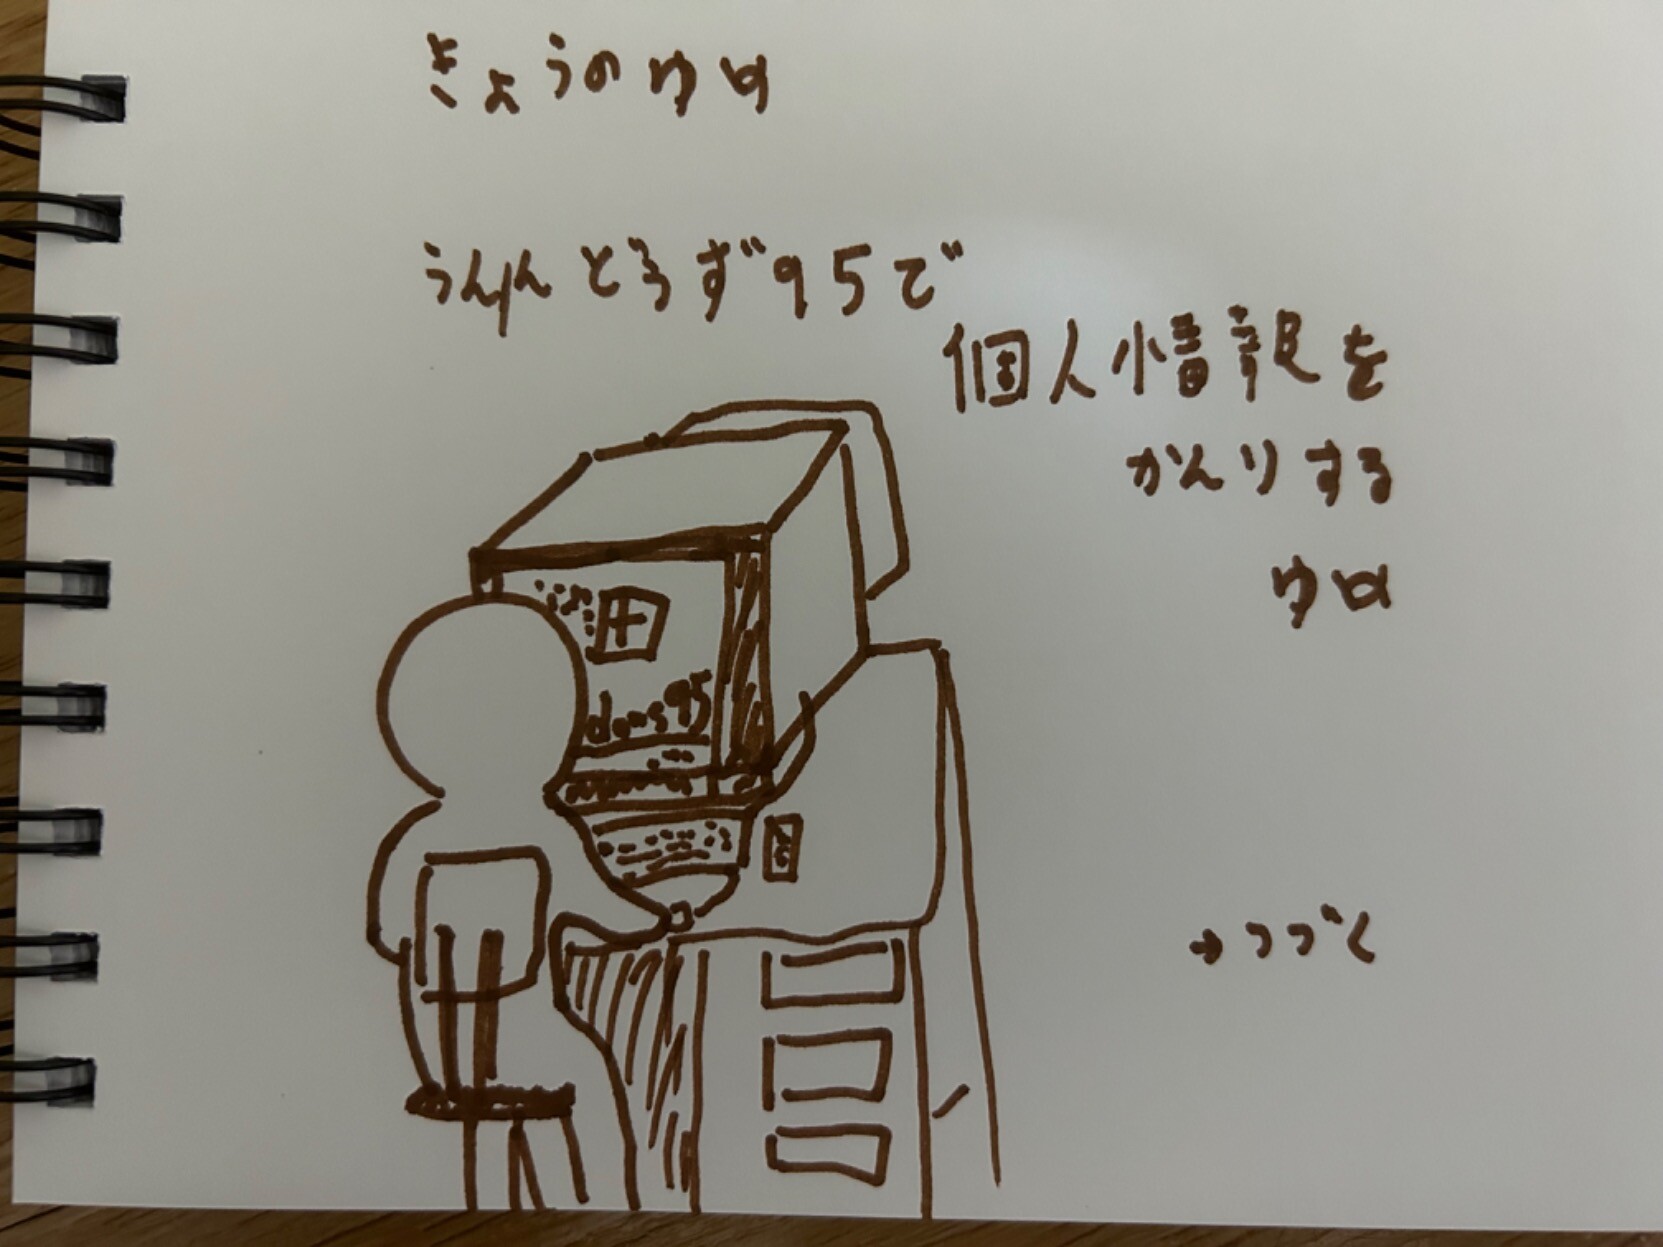 きょうのゆめ
うぃんどうず95で
個人情報を
かんりする
ゆめ
dows95
→つづく